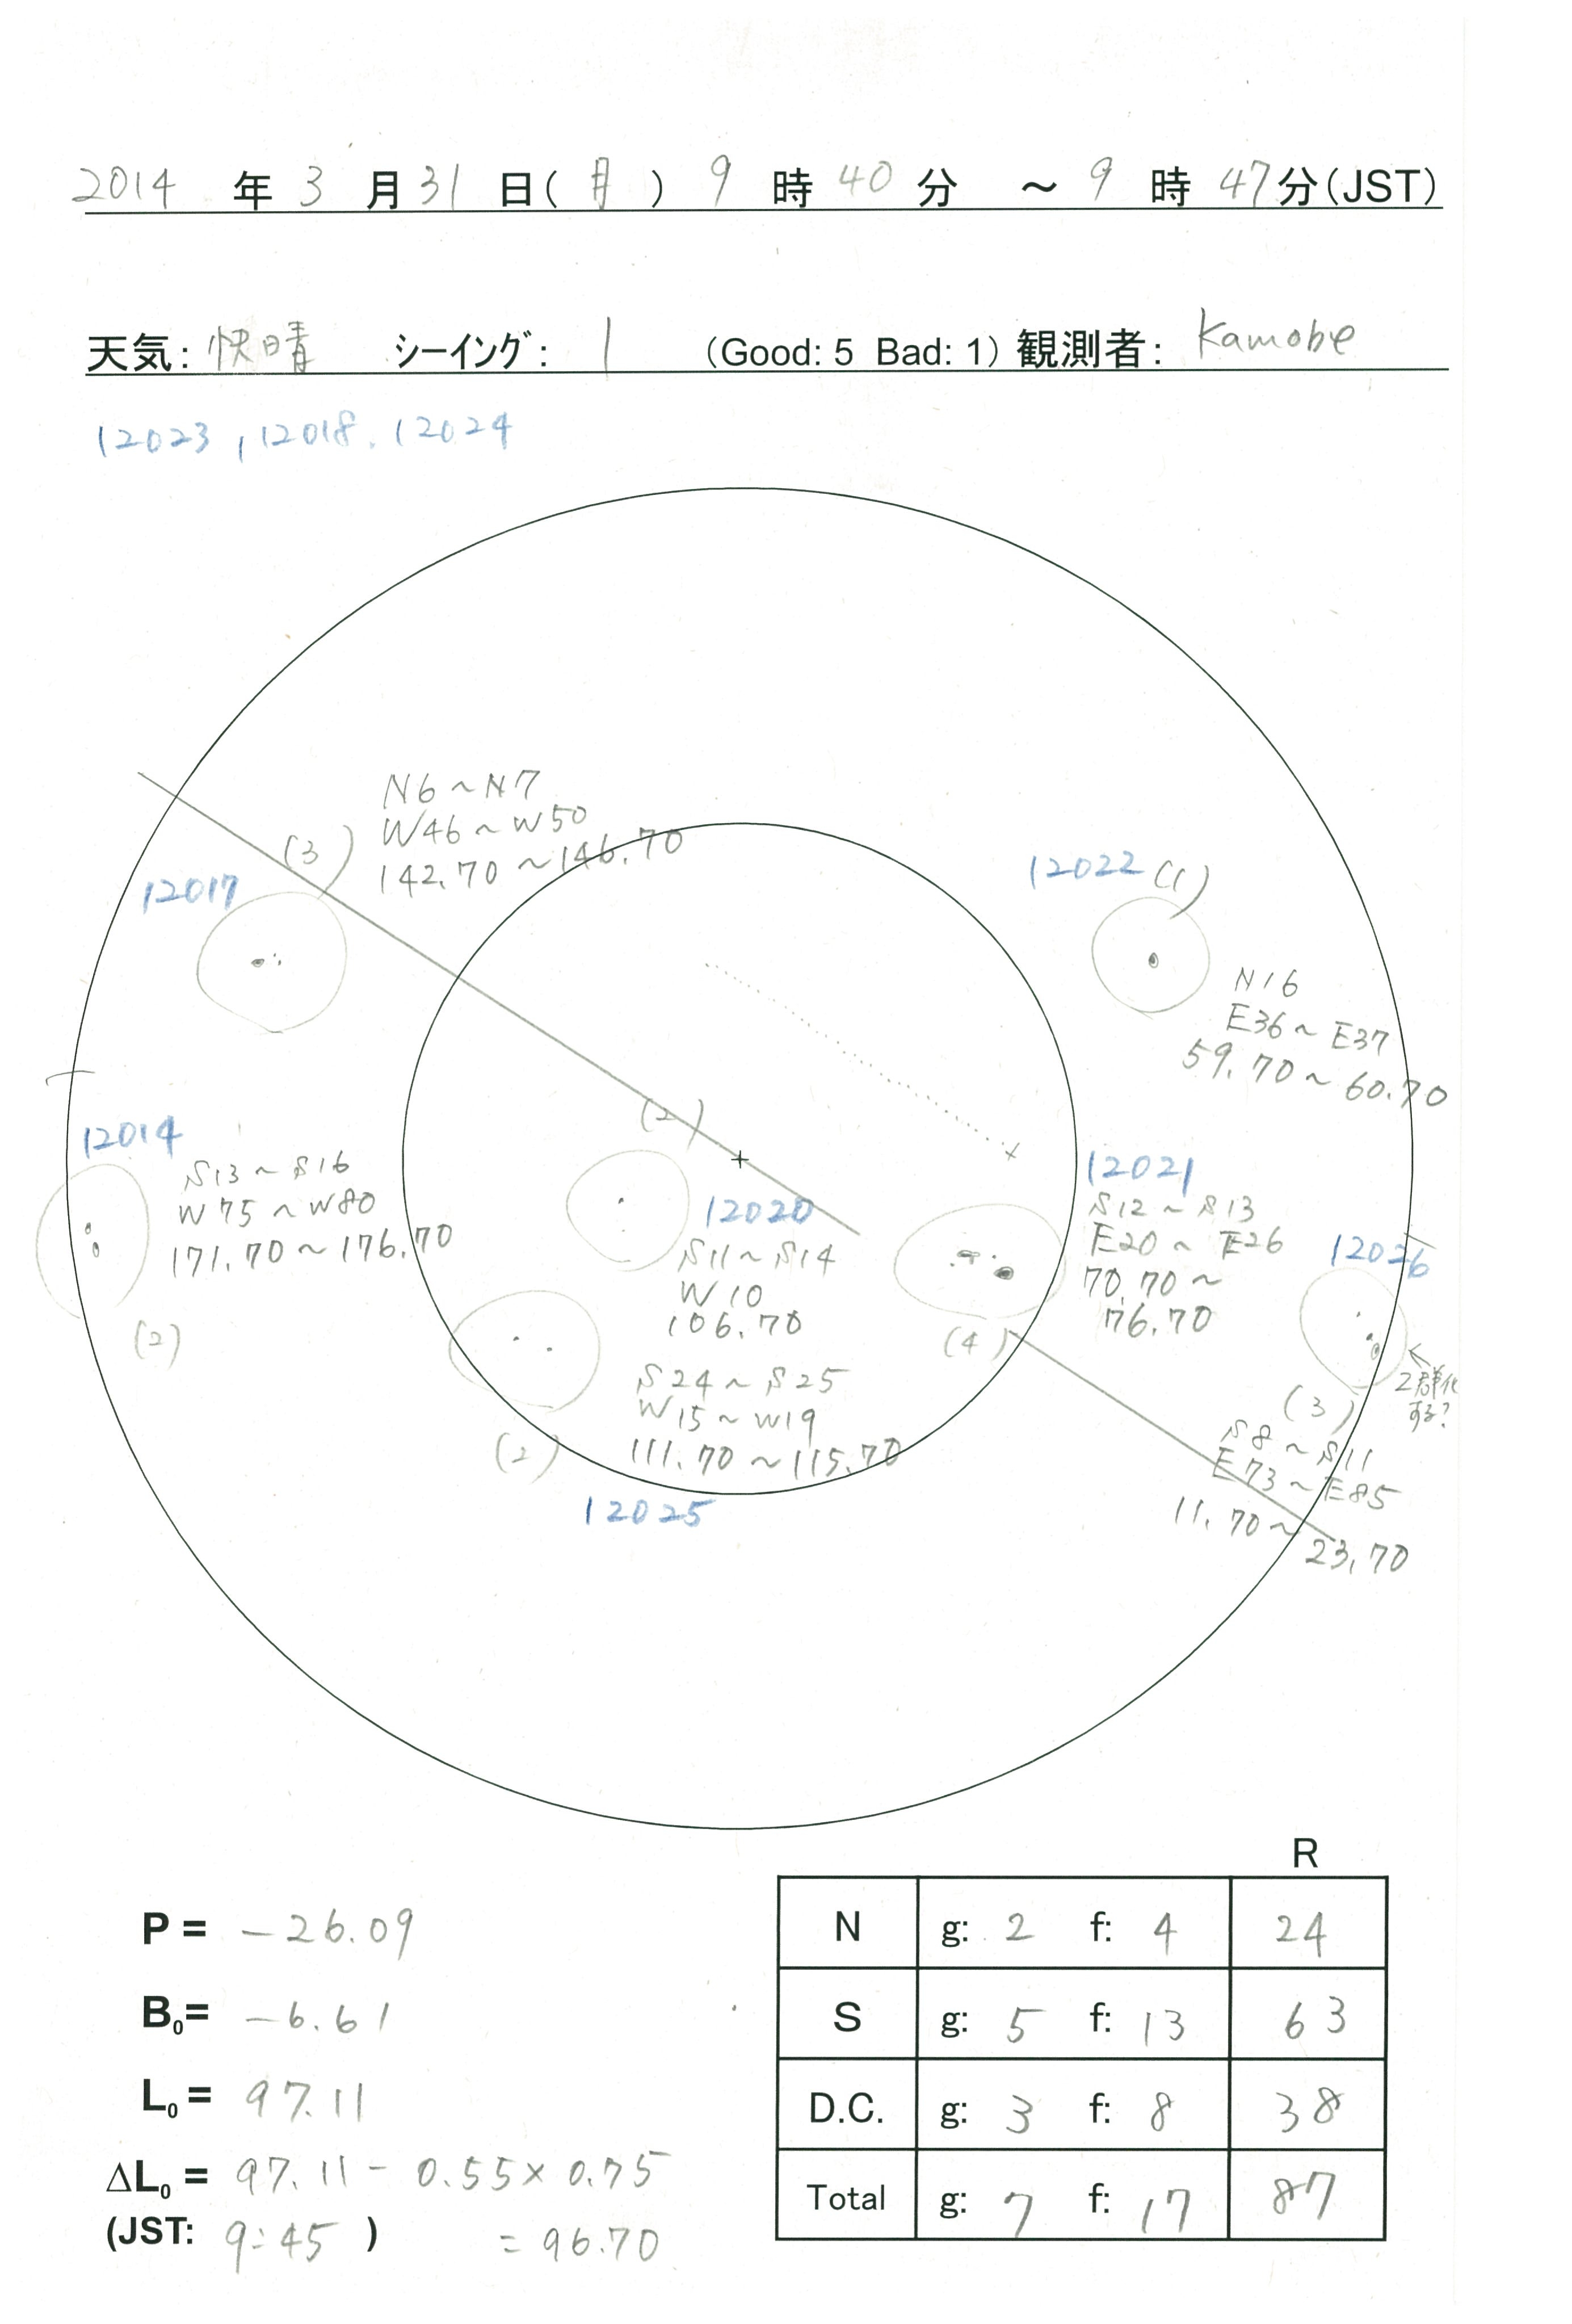 2014 年 3 月 31 日(月) 9 時 40 分 ～ 9 時 47 分(JST)
天気: 快晴 シーイング: 1 (Good: 5 Bad: 1) 観測者: Kamobe
12023, 12018. 12024
N6～N7
W46～W50
142.70～146.70
(3)
12017
12022 (1)
N16
E36～E37
59.70～60.70
12014
S13～S16
W75～W80
171.70～176.70
(2)
(2)
12020
S11～S14
W10
106.70
12021
S12～S13
E20～E26
70.70～
76.70
(4)
12026
←
2群化
する?
(3)
S8～S11
E73～E85
11.70～
23.70
S24～S25
W15～W19
111.70～115.70
(2)
12025
P = −26.09
B0= −6.61
L0 = 97.11
ΔL0 = 97.11 − 0.55×0.75
(JST: 9:45 ) = 96.70
R
N g: 2 f: 4 24
S g: 5 f: 13 63
D.C. g: 3 f: 8 38
Total g: 7 f: 17 87